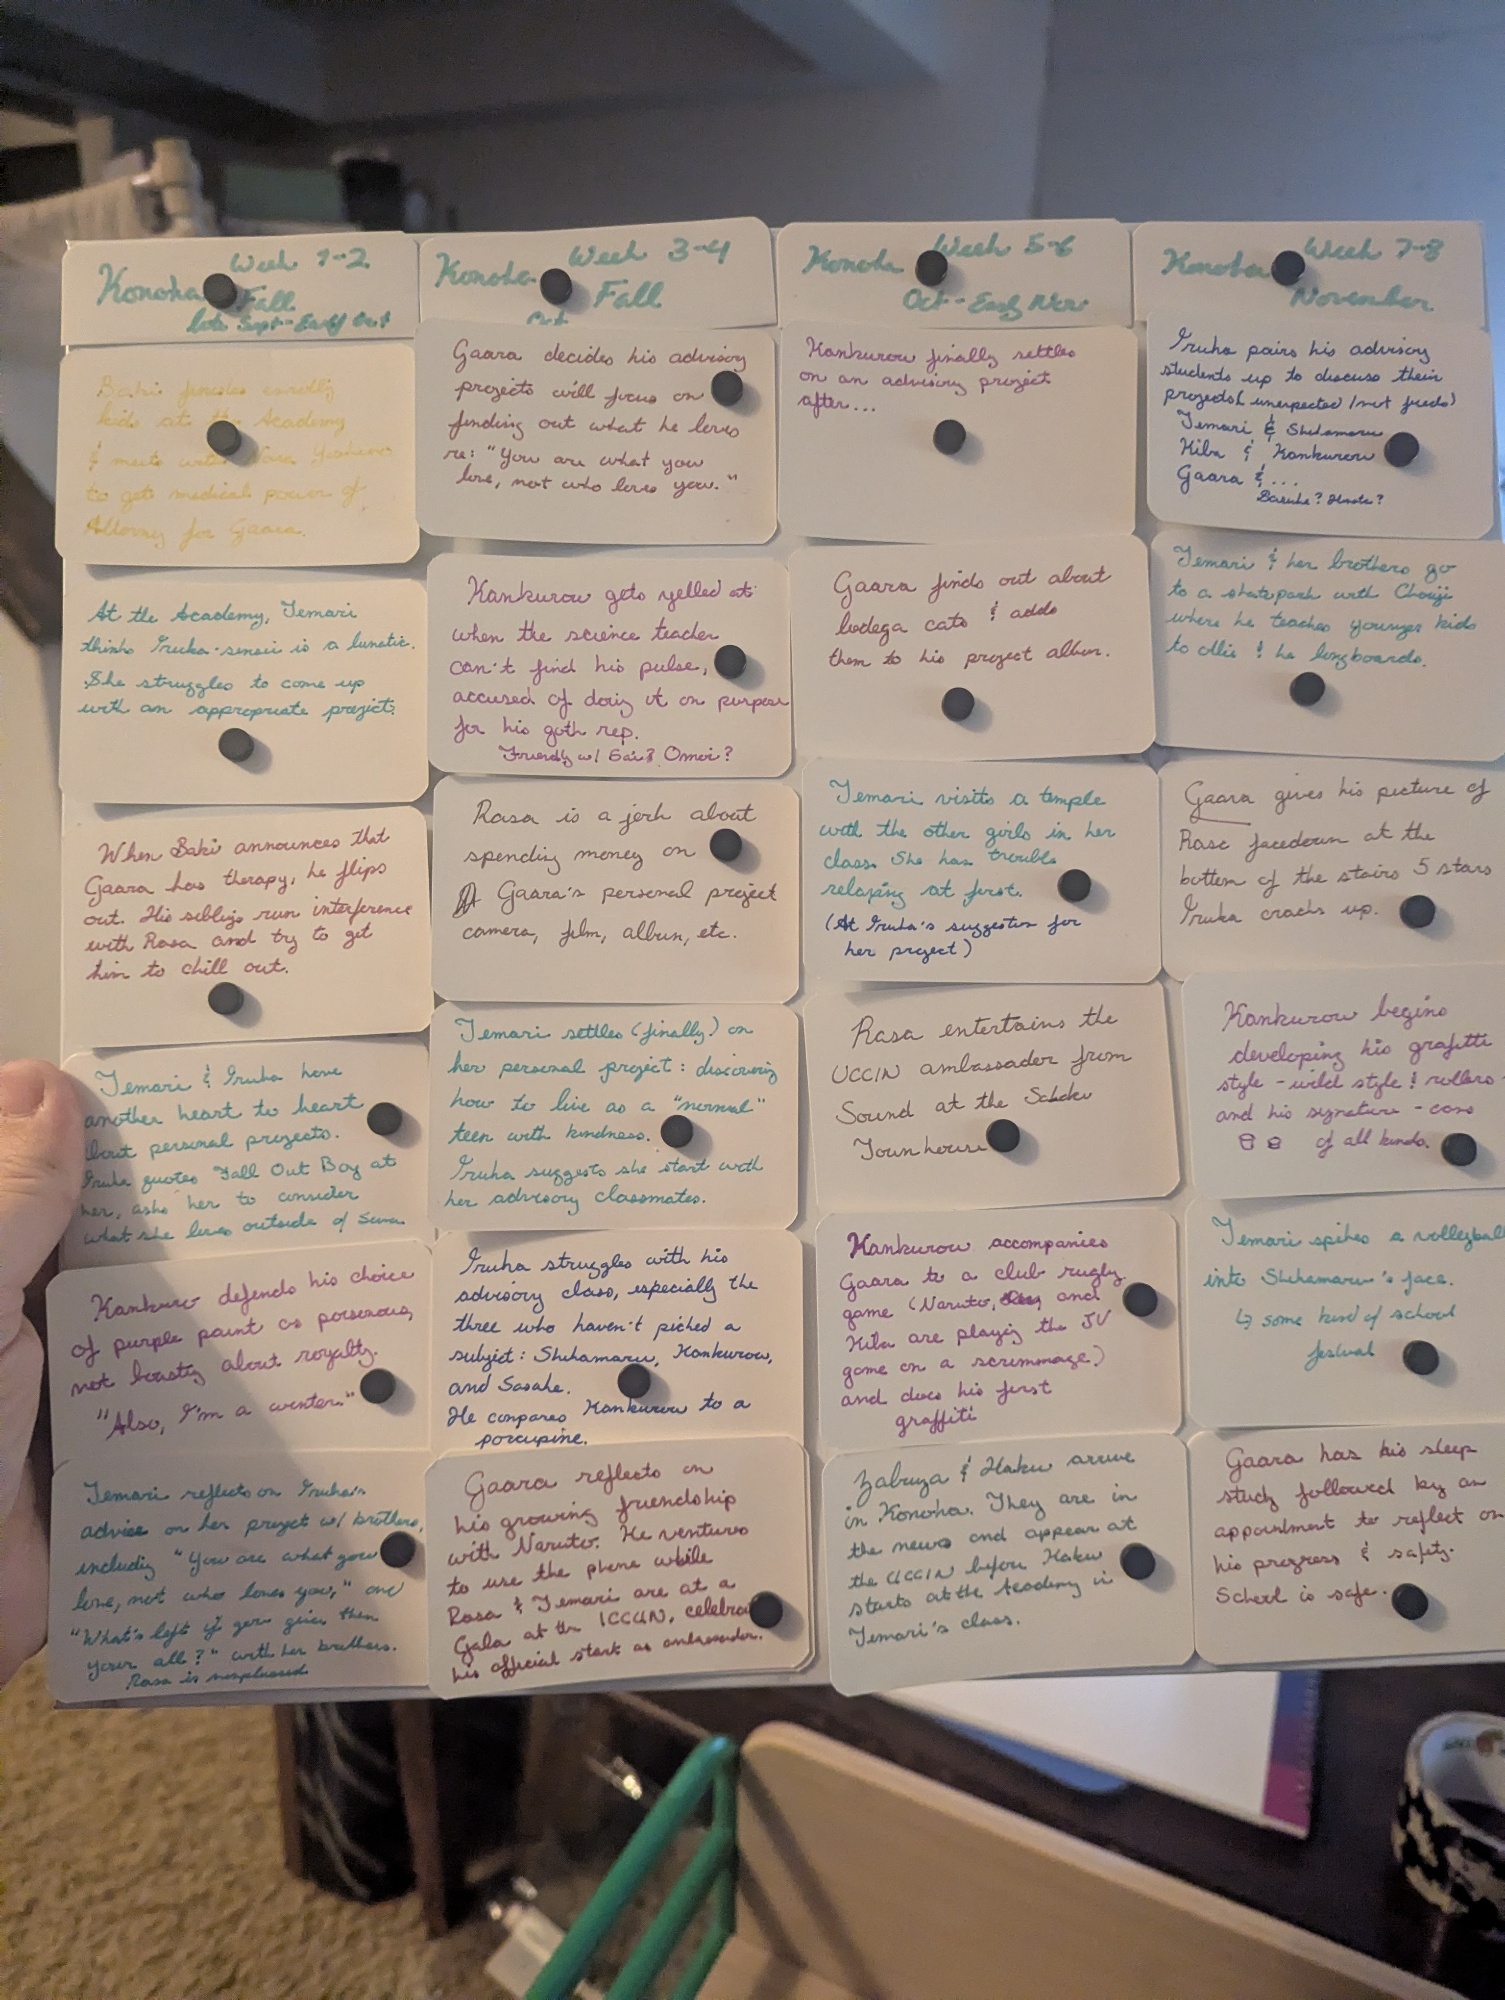 Konoha Week 1-2
Fall
late Sept - Early Oct
Baki finishes enrolling
kids at the Academy
& meets with
to get medical power of
Attorney for Gaara.
At the Academy, Temari
thinks Iruka-sensei is a lunatic.
She struggles to come up
with an appropriate project.
When Baki announces that
Gaara has therapy, he flips
out. His siblings run interference
with Rasa and try to get
him to chill out.
Temari & Iruka have
another heart to heart
about personal projects.
Iruka quotes Fall Out Boy at
her, asks her to consider
what she loves outside of Suna.
Kankuro defends his choice
of purple paint as poisonous,
not boasting about royalty.
"Also, I'm a winter."
Temari reflects on Iruka's
advice on her project w/ brothers,
including "You are what you
love, not who loves you," and
"What's left if you give them
your all?" with her brothers.
Rasa is nonplussed
Konoha Week 3-4
Fall
Oct
Gaara decides his advisory
projects will focus on
finding out what he loves
re: "You are what you
love, not who loves you."
Kankurou gets yelled at
when the science teacher
can't find his pulse,
accused of doing it on purpose
for his goth rep.
Friendly w/ Sai? Omoi?
Rasa is a jerk about
spending money on
Gaara's personal project
camera, film, album, etc.
Temari settles (finally) on
her personal project: discovering
how to live as a "normal"
teen with kindness.
Iruka suggests she start with
her advisory classmates.
Iruka struggles with his
advisory class, especially the
three who haven't picked a
subject: Shikamaru, Kankurou,
and Sasuke.
He compares Kankurou to a
porcupine.
Gaara reflects on
his growing friendship
with Naruto. He ventures
to use the phone while
Rasa & Temari are at a
Gala at the UCCIN, celebrating
his official start as ambassador.
Konoha Week 5-6
Oct - Early Nov
Kankurou finally settles
on an advisory project
after...
Gaara finds out about
bodega cats & adds
them to his project album.
Temari visits a temple
with the other girls in her
class. She has trouble
relaxing at first.
(At Iruka's suggestion for
her project)
Rasa entertains the
UCCIN ambassador from
Sound at the
Townhouse
Kankurou accompanies
Gaara to a club rugby
game (Naruto, and
Kiba are playing the JV
game on a scrimmage)
and does his first
graffiti
Zabuza & Haku arrive
in Konoha. They are in
the news and appear at
the UCCIN before Haku
starts at the Academy in
Temari's class.
Konoha Week 7-8
November
Iruka pairs his advisory
students up to discuss their
projects (unexpected / not friends)
Temari & Shikamaru
Kiba & Kankurou
Gaara & ...
Sasuke? Hinata?
Temari & her brothers go
to a skatepark with Chouji
where he teaches younger kids
to ollie & he longboards.
Gaara gives his picture of
Rasa facedown at the
bottom of the stairs 5 stars
Iruka cracks up.
Kankurou begins
developing his grafitti
style - wild style & rollers -
and his signature - cans
of all kinds.
Temari spikes a volleyball
into Shikamaru's face.
↳ some kind of school
festival
Gaara has his sleep
study followed by an
appointment to reflect on
his progress & safety.
School is safe.